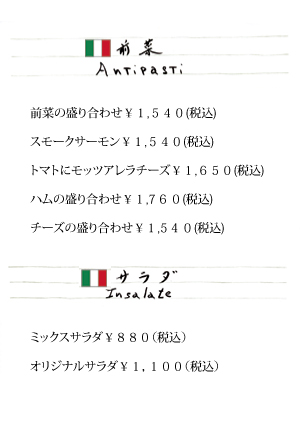 前菜
Antipasti
前菜の盛り合わせ￥１,５４０(税込)
スモークサーモン￥１,５４０(税込)
トマトにモッツアレラチーズ￥１,６５０(税込)
ハムの盛り合わせ￥１,７６０(税込)
チーズの盛り合わせ￥１,５４０(税込)
サラダ
Insalate
ミックスサラダ￥８８０(税込)
オリジナルサラダ￥１,１００(税込)